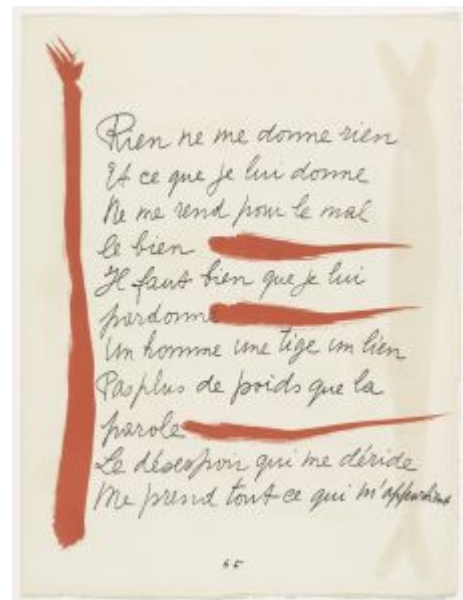 Rien ne me donne rien
Et ce que je lui donne
Ne me rend pour le mal
le bien
Il faut bien que je lui
pardonne
Un homme une tige un lien
Pas plus de poids que la
parole
Le désespoir qui me déride
Me prend tout ce qui m'appartient